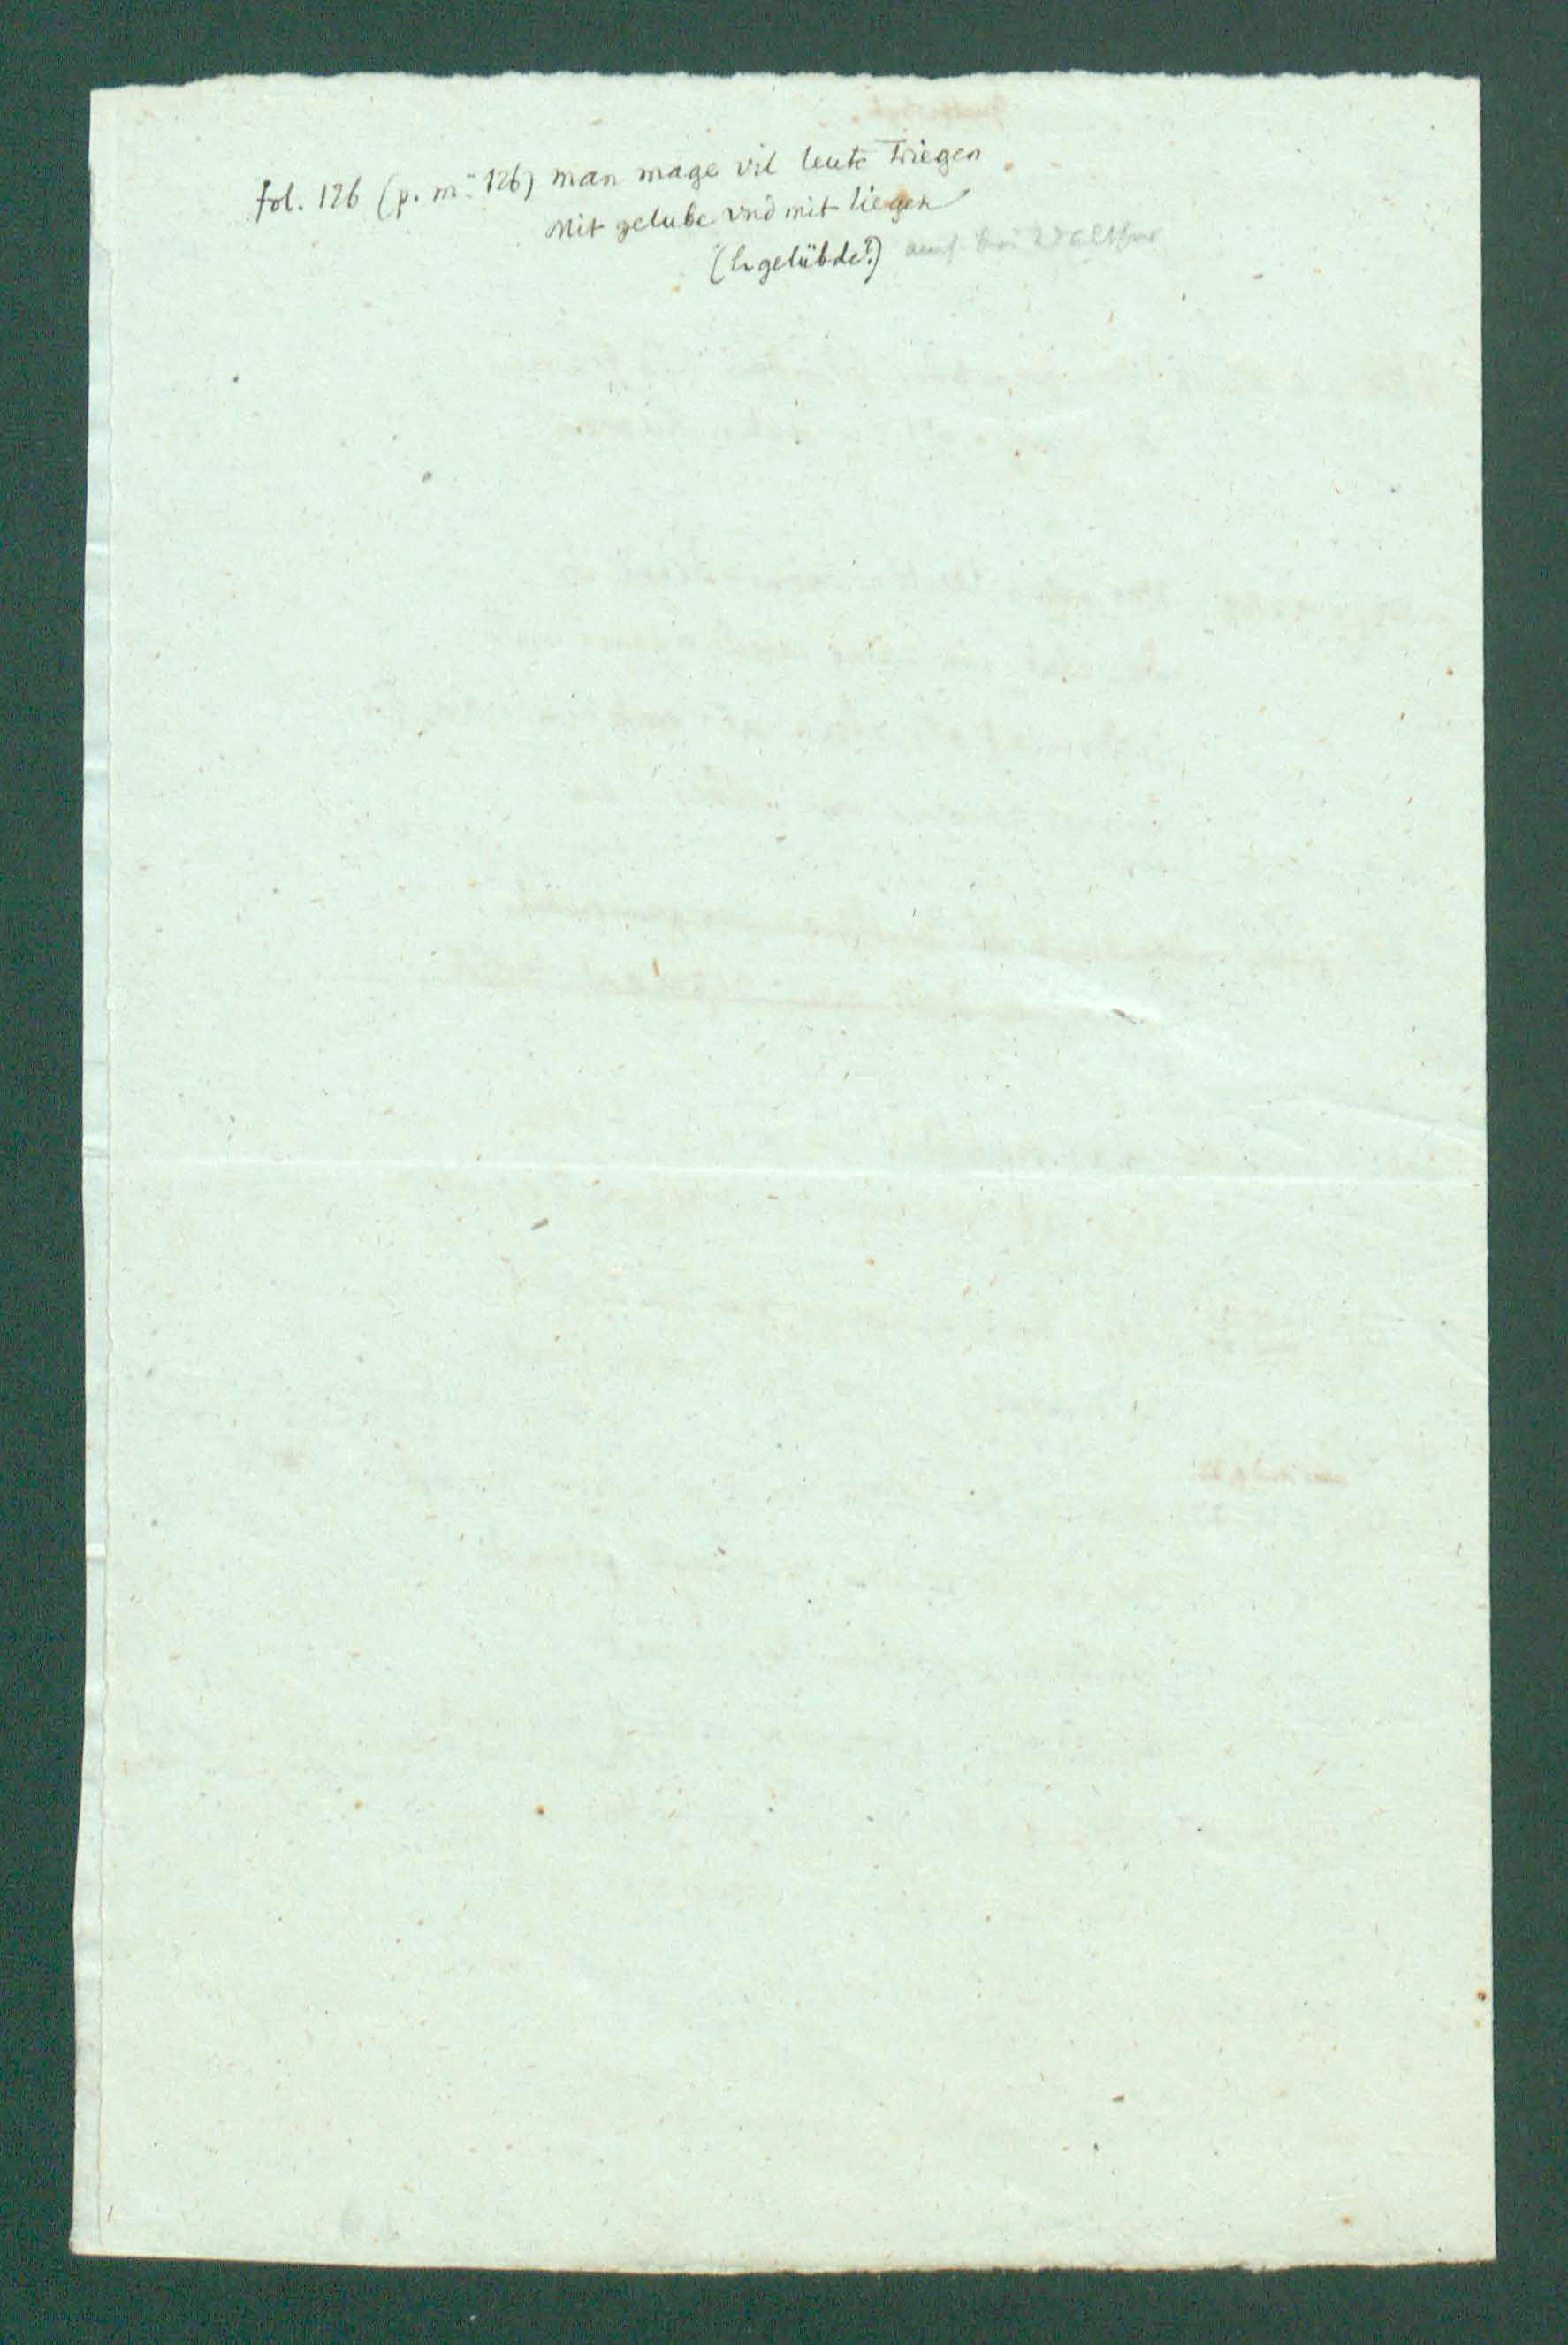 fol. 126 (p. m. 126) man mage vil leute Triegen
Mit gelube vnd mit liegen
(l. gelübde?) auch bei Walther